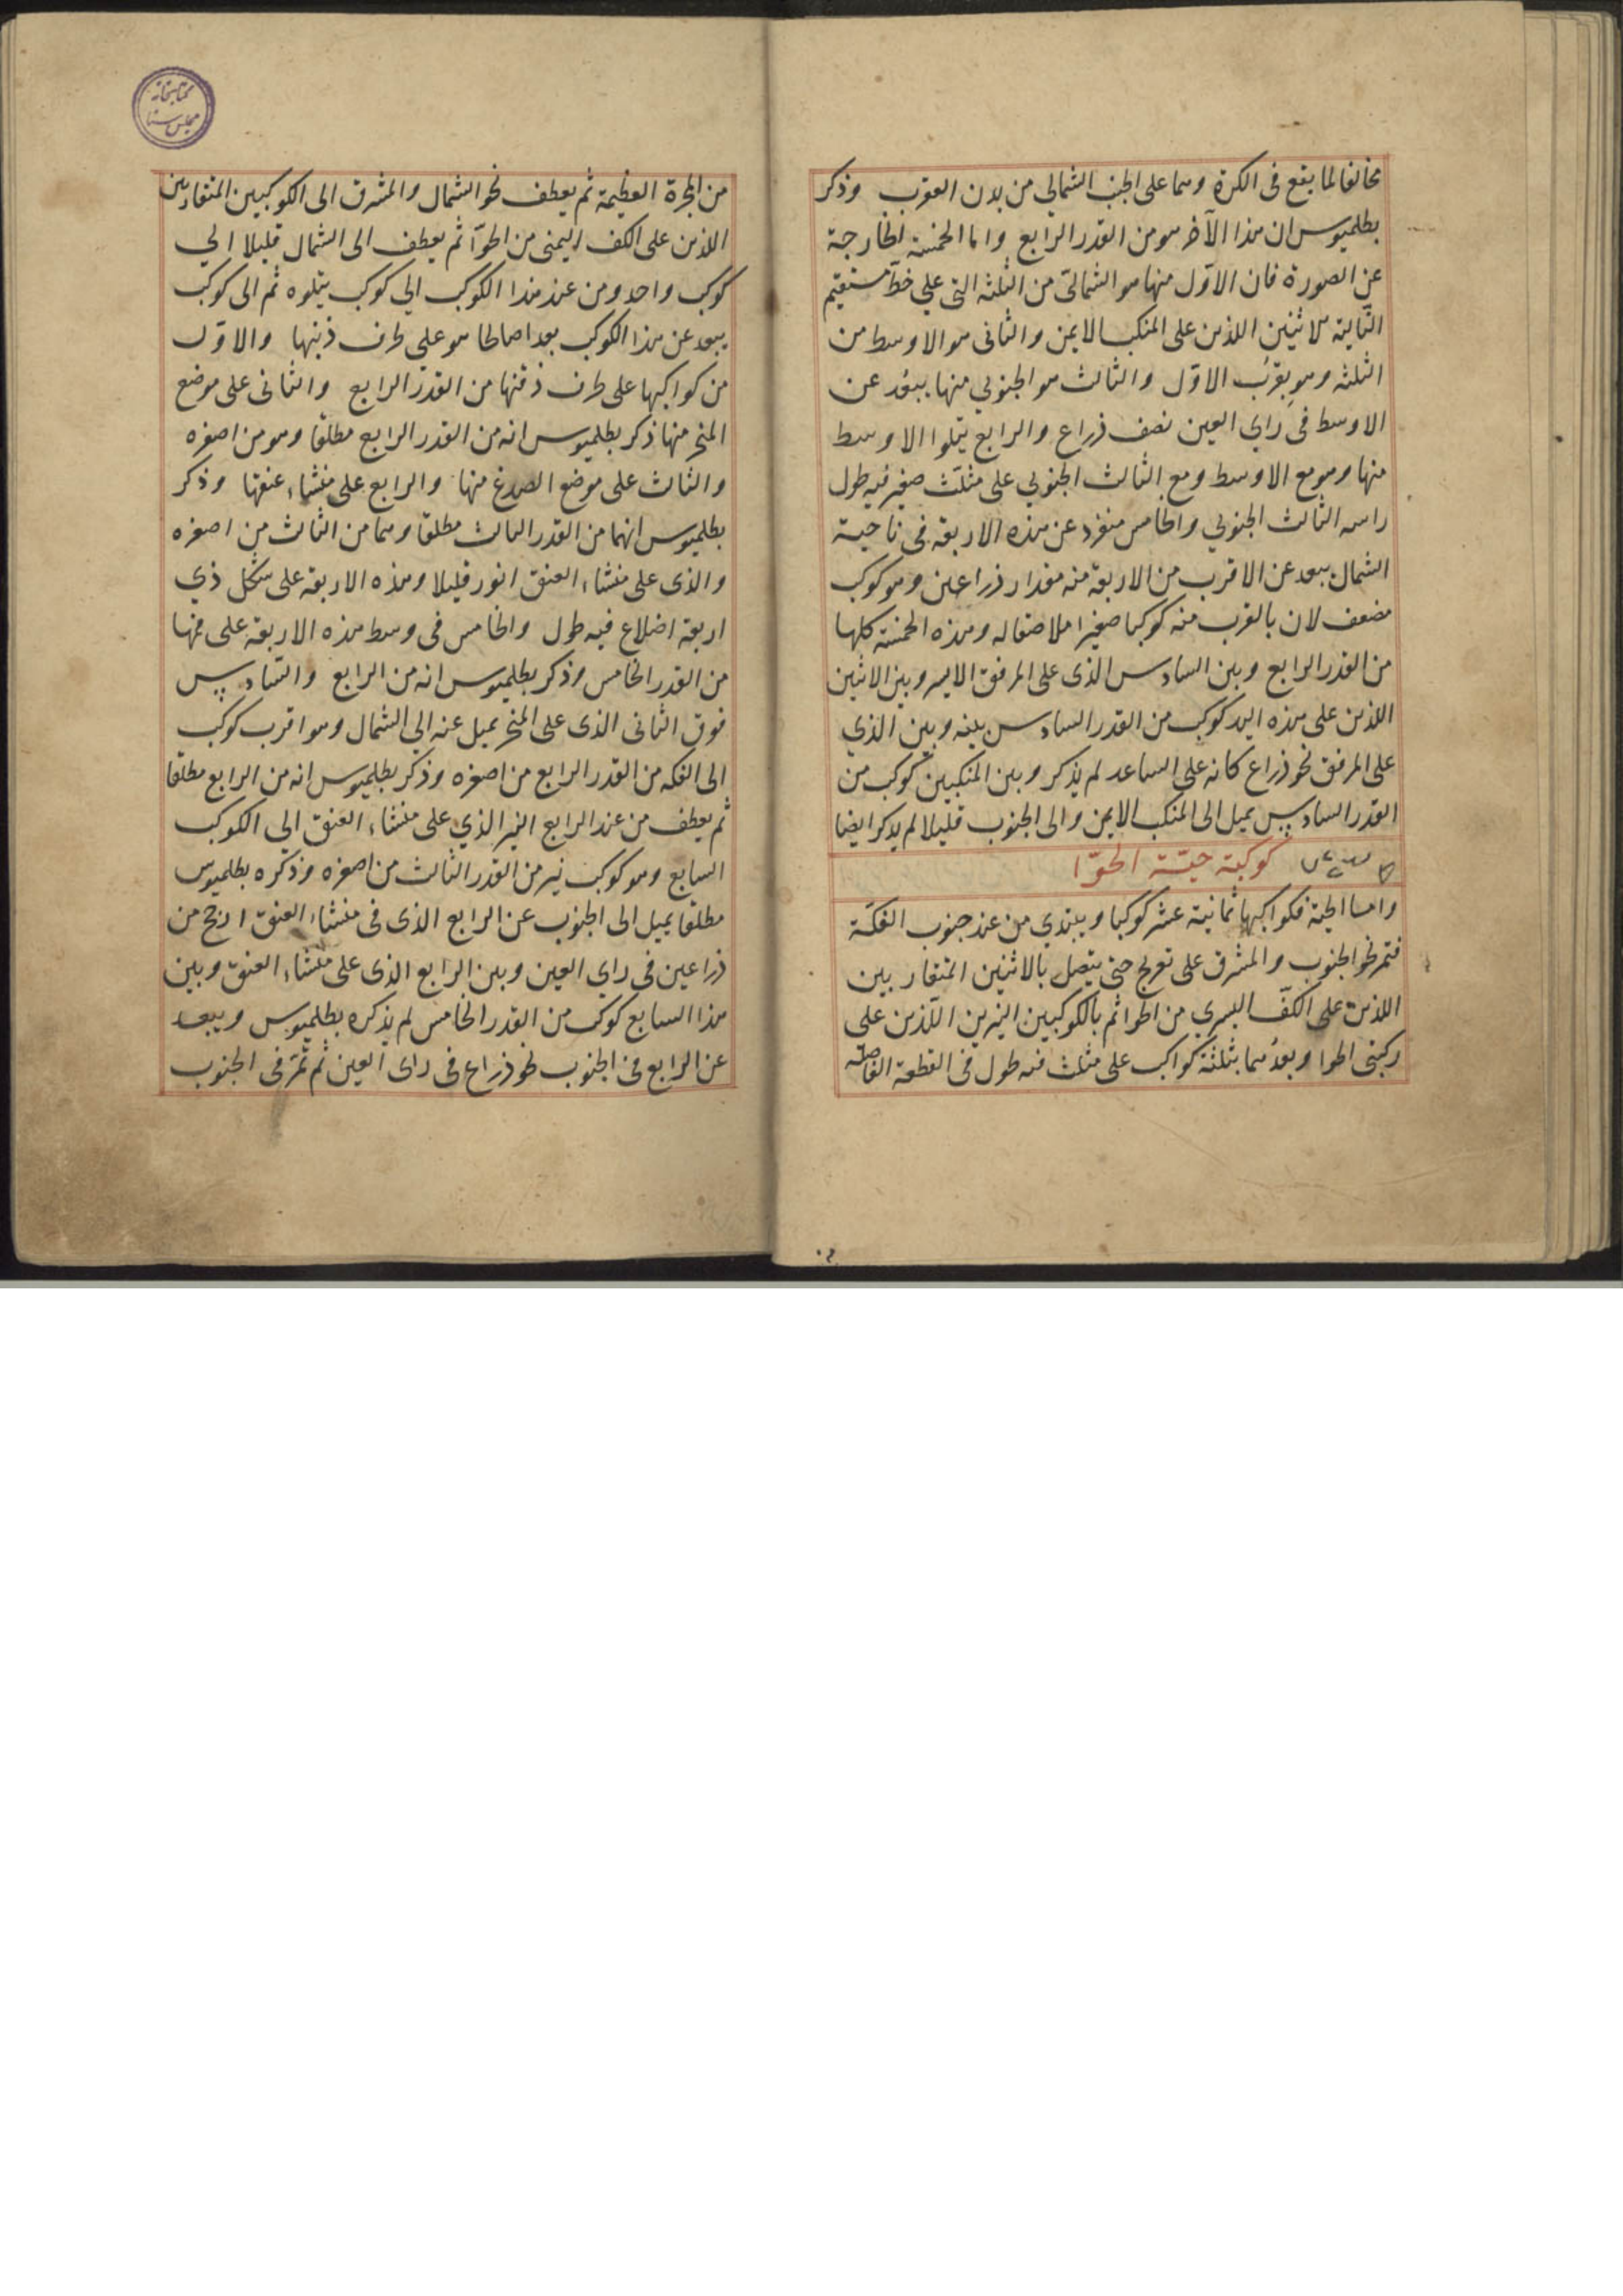 مخالفا لما يقع فى الكرة وهما على الجنب الشمالي من بدن العقرب وذكر
بطلميوس ان هذا الآخر هو من القدر الرابع واما الخمسة الخارجة
عن الصورة فان الاول منها هو الشمالىّ من الثلثه التى على خطّ مستقيم
التالية للاثنين اللذين على المنكب الايمن والثانى هو الاوسط من
الثلثه وهو بقرب الاوّل والثالث هو الجنوبي منها يبعُد عن
الاوسط فى راي العين نصف ذراع والرابع يتلوا الاوسط
منها وهو مع الاوسط ومع الثالث الجنوبي على مثلّث صغير فيه طول
راسه الثالث الجنوبي والخامس منفرد عن هذه الاربعة فى ناحية
الشمال يبعد عن الاقرب من الاربعة منه مقدار ذراعين وهو كوكب
مضعف لان بالقرب منه كوكبا صغيرا ملاصقا له وهذه الخمسة كلها
من القدر الرابع وبين السادس الذى على المرفق الايسر وبين الاثنين
اللذين على هذه اليد كوكب من القدر السادس بينه وبين الذي
على المرفق نحو ذراع كانه على الساعد لم يذكر وبين المنكبين كوكب من
القدر السادس يميل الى المنكب الايمن والى الجنوب قليلا لم يذكر ايضا
كوكبة حيّة الحوّا
واما الحية فكواكبها ثمانية عشر كوكبا ويبتدي من عند جنوب الفكّة
فتمر نحو الجنوب والمشرق على تعريج حتى يتصل بالاثنين المتقاربين
اللذين على الكفّ اليسري من الحوا ثم بالكوكبين النيرين اللّذين على
ركبتى الحوا وبعدُهما بثلثة كواكب على مثلث فيه طول فى القطعة الفاصلة
من المجرة العظيمة ثم يعطف نحو الشمال والمشرق الى الكوكبين المتقاربين
اللذين على الكف اليمنى من الحوّا ثم يعطف الى الشمال قليلا الي
كوكب واحد ومن عند هذا الكوكب الي كوكب يتلوه ثم الى كوكب
يبعد عن هذا الكوكب بعدا صالحا هو علي طرف ذنبها والاوّل
من كواكبها على طرف ذقنها من القدر الرابع والثانى على موضع
المنخر منها ذكر بطلميوس انه من القدر الرابع مطلقا وهو من اصغره
والثالث على موضع الصدغ منها والرابع على منشاء عنقها وذكر
بطلميوس انهما من القدر الثالث مطلقا وهما من الثالث من اصغره
والذى على منشاء العنق انور قليلا وهذه الاربعة على شكل ذي
اربعة اضلاع فيه طول والخامس فى وسط هذه الاربعة على فمها
من القدر الخامس وذكر بطلميوس انه من الرابع والسّادس
فوق الثانى الذى على المنخر يميل عنه الي الشمال وهو اقرب كوكب
الى الفكه من القدر الرابع من اصغره وذكر بطلميوس انه من الرابع مطلقا
ثم يعطف من عند الرابع النير الذي على منشاء العنق الي الكوكب
السابع وهو كوكب نير من القدر الثالث من اصغره وذكره بطلميوس
مطلقا يميل الى الجنوب عن الرابع الذى فى منشاء العنق ارجح من
ذراعين فى راي العين وبين الرابع الذى على منشاء العنق وبين
هذا السابع كوكب من القدر الخامس لم يذكره بطلميوس ويبعد
عن الرابع فى الجنوب نحو ذراع فى راى العين ثم تمرّ فى الجنوب